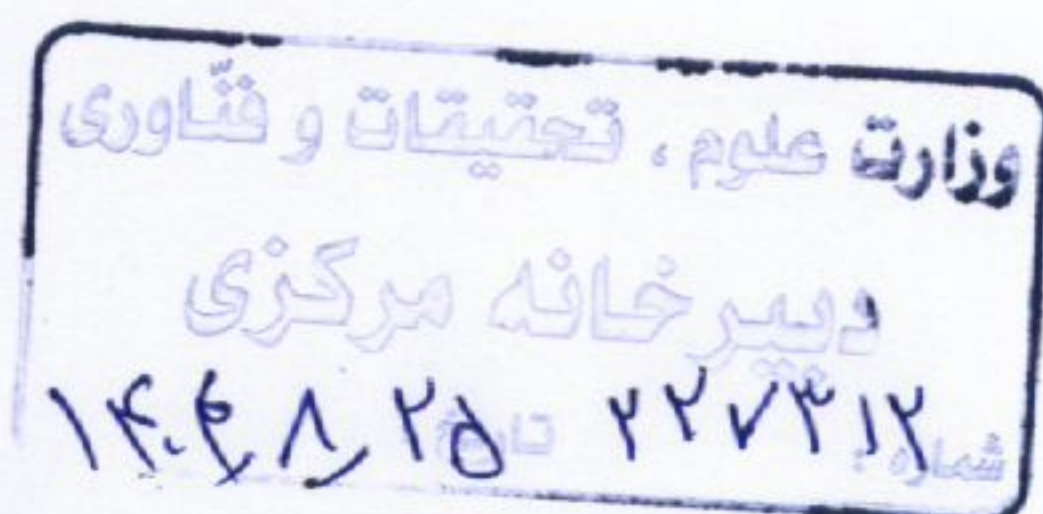 وزارت علوم ، تحقیقات و فنّاوری
دبیرخانه مرکزی
شماره: ۲۲۷۳۱۲ تاریخ ۱۴۰۴/۸/۲۵